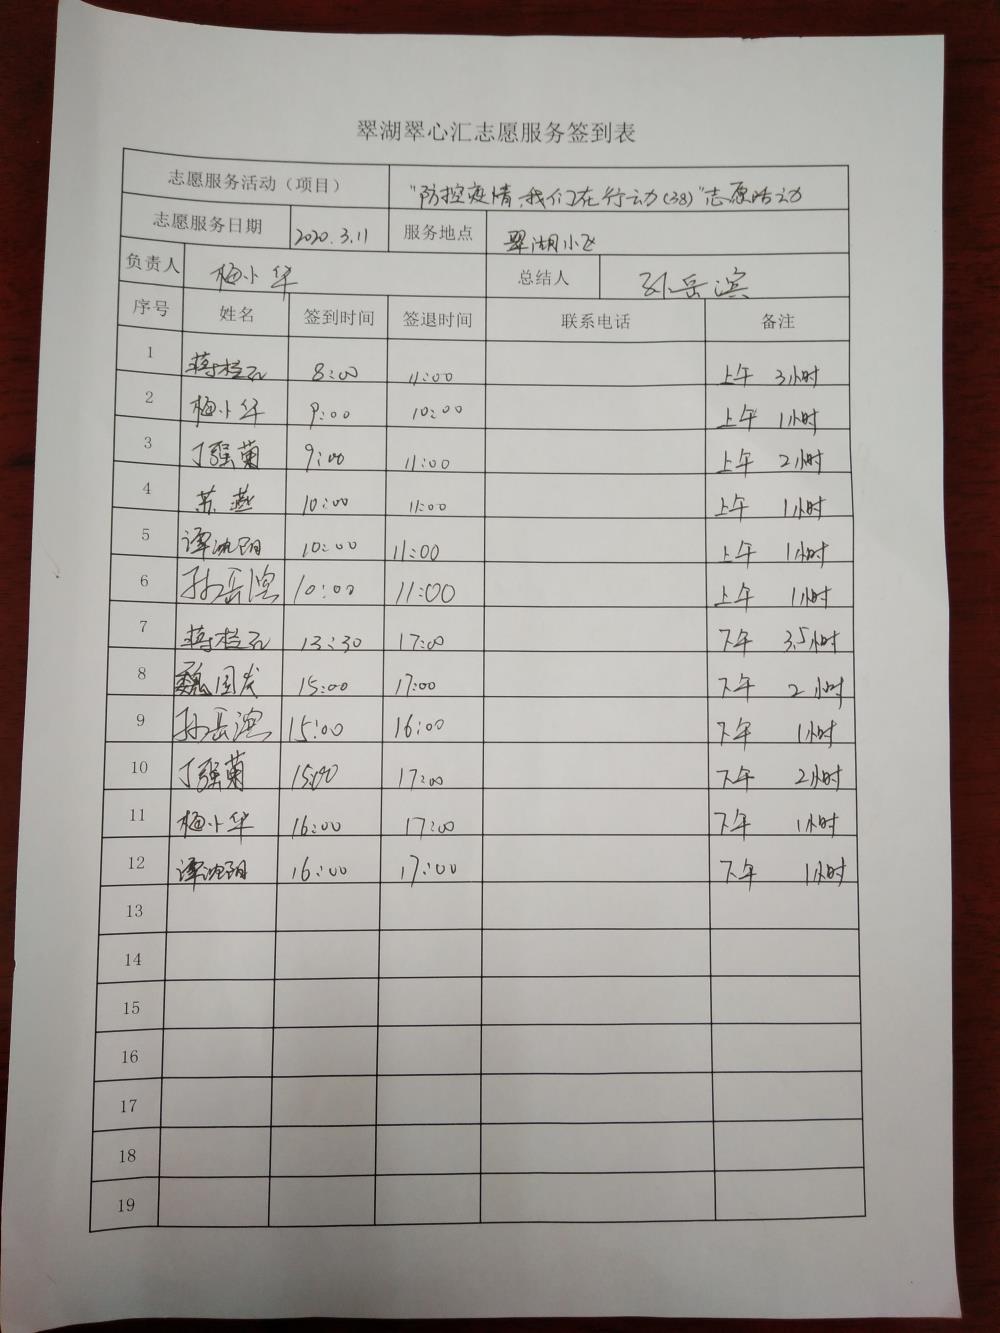 翠湖翠心汇志愿服务签到表
志愿服务活动（项目） "防控疫情,我们在行动(38)"志愿活动
志愿服务日期 2020.3.11 服务地点 翠湖小区
负责人 梅小华 总结人 孙岳滨
序号 姓名 签到时间 签退时间 联系电话 备注
1 8:00 11:00 上午 3小时
2 梅小华 9:00 10:00 上午 1小时
3 丁强菊 9:00 11:00 上午 2小时
4 苏燕 10:00 11:00 上午 1小时
5 谭沈阳 10:00 11:00 上午 1小时
6 孙岳滨 10:00 11:00 上午 1小时
7 13:30 17:00 下午 3.5小时
8 魏国发 15:00 17:00 下午 2小时
9 孙岳滨 15:00 16:00 下午 1小时
10 丁强菊 15:00 17:00 下午 2小时
11 梅小华 16:00 17:00 下午 1小时
12 谭沈阳 16:00 17:00 下午 1小时
13
14
15
16
17
18
19